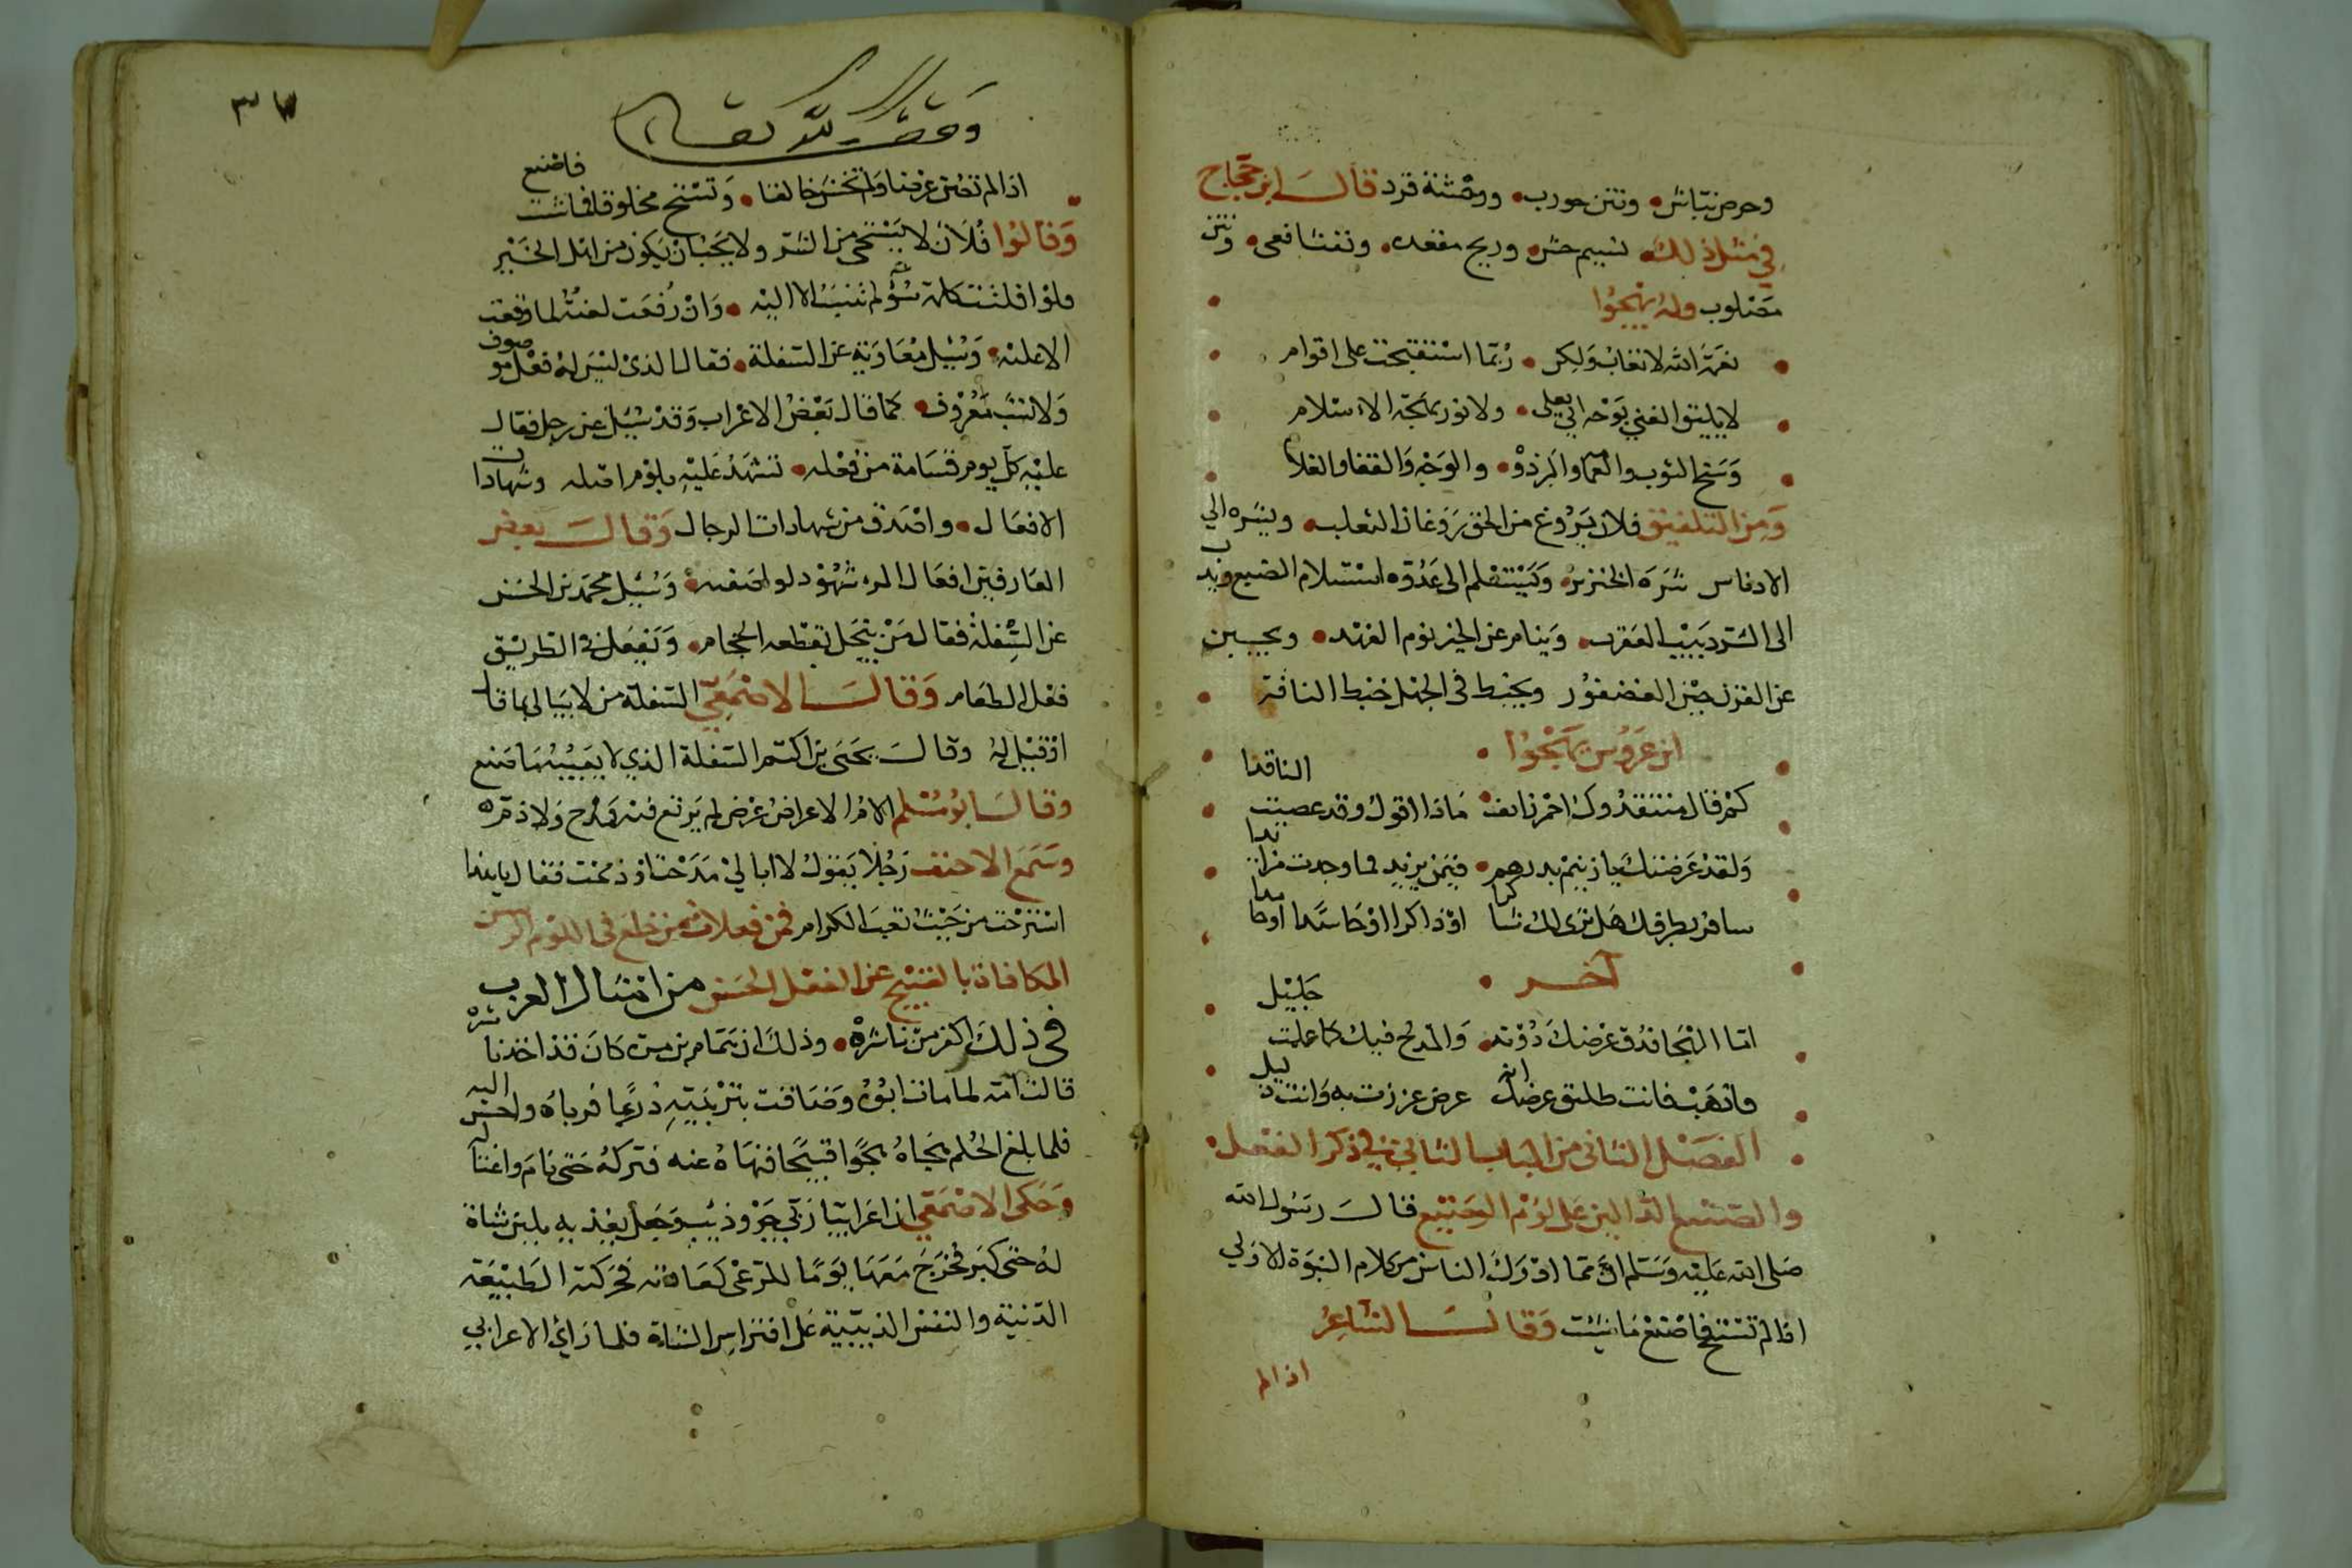 وحرص نباش ونتن جورب ووحشة قرد قال ابن حجاج
في مثل ذلك نسيم حش وريح مقعده ونفث افعى ونتن
مصلوب وله يهجوا
نعمة الله لا تعاب ولكن ربما استقبحت على اقوام
لا يليق الغني بوجه ابي يعلى ولا نور بهجة الاسلام
وسخ الثوب والعمامة والبرذون والوجه والقفا والغلام
ومن التلفيق فلان يروغ من الحق روغان الثعلب ويشره الي
الادناس شره الخنزير ويستسلم الى عدوه استسلام الضبع ويدب
الى الشر دبيب العقرب وينام عن الخير نوم الفهد ويجبن
عن القرن جبن العصفور ويخبط في الجهل خبط الناقة
ابن عروس يهجوا
كم قال منتقدوك احمر زائف ماذا اقول وقد عصيت الناقدا
ولقد عرضتك يا زنيم بدرهم فيمن يزيد فما وجدت مزايدا
سافر بطرفك هل ترى لك شاكرا او ذاكرا او حاسدا او حامدا
آخر
اما الهجا فدق عرضك دونه والمدح فيك كما علمت جليل
فاذهب فانت طليق عرضك انه عرض عززت به وانت ذليل
الفصل الثاني من الباب الثاني في ذكر الفعل
والصنيع الدالين على لؤم الوضيع قال رسول الله
صلى الله عليه وسلم ان مما ادرك الناس من كلام النبوة الاولي
اذا لم تستح فاصنع ما شئت وقال الشاعر
اذا لم
٣٧
وقف لله تعالى
اذا لم تصن عرضا ولم تخش خالقا وتستح مخلوقا فما شئت فاصنع
وقالوا فلان لا يستحي من الشر ولا يحب ان يكون من اهل الخير
فلو افلتت كلمة سوء لم تنسب الا اليه وان رفعت لعنة لما وقعت
الا عليه وسئل معاوية عن السفلة فقال الذي ليس له فعل موصوف
ولا نسب معروف كما قال بعض الاعراب وقد سئل عن رجل فقال
عليه كل يوم قسامة من فعله تشهد عليه بلؤم اصله وشهادات
الافعال واصدق من شهادات الرجال وقال بعض
العارفين افعال المرء شهود لواصفه وسئل محمد بن الحسن
عن السفلة فقال من ينخل بقطعه الحجام ويفعل في الطريق
فعل الطعام وقال الاصمعي السفلة من لا يبالي بما قال
او قيل له وقال يحيى بن اكثم السفلة الذي لا يعيبه ما صنع
وقال ابو مسلم الام الاعراض عرض لم يرتع فيه مدح ولا ذم
وسمع الاحنف رجلا يقول لا ابالي مدحت او ذممت فقال يا هذا
استرحت من حيث تعب الكرام فمن فعلات من خلع في اللؤم الرسن
المكافاة بالقبيح عن الفعل الحسن من امثال العرب
في ذلك اكفر من ناشرة وذلك ان همام بن مرة كان قد اخذ ناشرة
قالت امه لما مات ابوه وضاقت بتربيته ذرعا فرباه واحسن اليه
فلما بلغ الحلم هجاه هجوا قبيحا فنهاه عنه فتركه حتى نام واغتاله
وحكى الاصمعي ان اعرابيا ربي جرو ذئب وجعل يغذيه بلبن شاة
له حتى كبر فخرج معها يوما للمرعى كعادته فحركته الطبيعة
الدنية والنفس الذيبية على افتراس الشاة فلما رأي الاعرابي